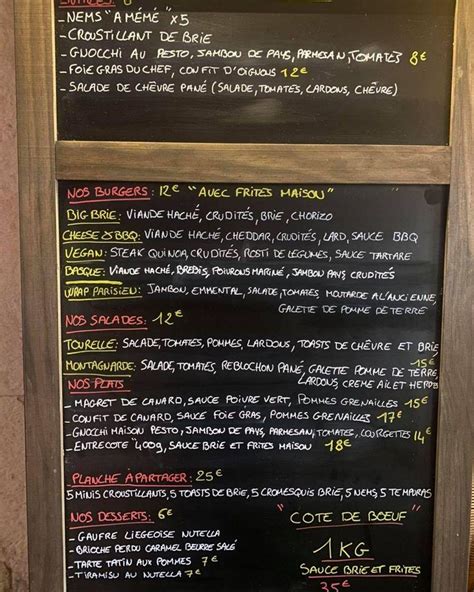 - NEMS "A MÉMÉ" x5
- CROUSTILLANT DE BRIE
- GNOCCHI AU PESTO, JAMBON DE PAYS, PARMESAN, TOMATES 8€
- FOIE GRAS DU CHEF, CONFIT D'OIGNOUS 12€
- SALADE DE CHÈVRE PANÉ (SALADE, TOMATES, LARDONS, CHÈVRE)
NOS BURGERS: 12€ "AVEC FRITES MAISON"
BIG BRIE: VIANDE HACHÉ, CRUDITÉS, BRIE, CHORIZO
CHEESE & BBQ: VIANDE HACHÉ, CHEDDAR, CRUDITÉS, LARD, SAUCE BBQ
VEGAN: STEAK QUINOA, CRUDITÉS, ROSTI DE LÉGUMES, SAUCE TARTARE
BASQUE: VIANDE HACHÉ, BREBIS, POIVRONS MARINÉ, JAMBON PAYS CRUDITÉS
WRAP PARISIEN: JAMBON, EMMENTAL, SALADE, TOMATES, MOUTARDE A L'ANCIENNE,
GALETTE DE POMME DE TERRE
NOS SALADES: 12€
TOURELLE: SALADE, TOMATES, POMMES, LARDONS, TOASTS DE CHÈVRE ET BRIE
MONTAGNARDE: SALADE, TOMATES, REBLOCHON PANÉ, GALETTE POMME DE TERRE, 15€
LARDONS, CREME AIL ET HERBES
NOS PLATS
- MAGRET DE CANARD, SAUCE POIVRE VERT, POMMES GRENAILLES 15€
- CONFIT DE CANARD, SAUCE FOIE GRAS, POMMES GRENAILLES 17€
- GNOCCHI MAISON PESTO, JAMBON DE PAYS, PARMESAN, TOMATES, COURGETTES 14€
- ENTRECOTE 400g, SAUCE BRIE ET FRITES MAISON 18€
PLANCHE À PARTAGER: 25€
5 MINIS CROUSTILLANTS, 5 TOASTS DE BRIE, 5 CROMESQUIS BRIE, 5 NEMS, 5 TEMPURAS
NOS DESSERTS: 6€
- GAUFRE LIEGEOISE NUTELLA
- BRIOCHE PERDU CARAMEL BEURRE SALÉ
- TARTE TATIN AUX POMMES 7€
- TIRAMISU AU NUTELLA 7€
"COTE DE BOEUF"
1KG
SAUCE BRIE ET FRITES
35€